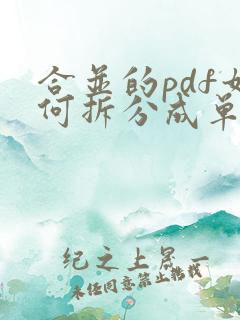 合并的pdf如
何拆分成单
纪之上晃一
未经同意禁止转载